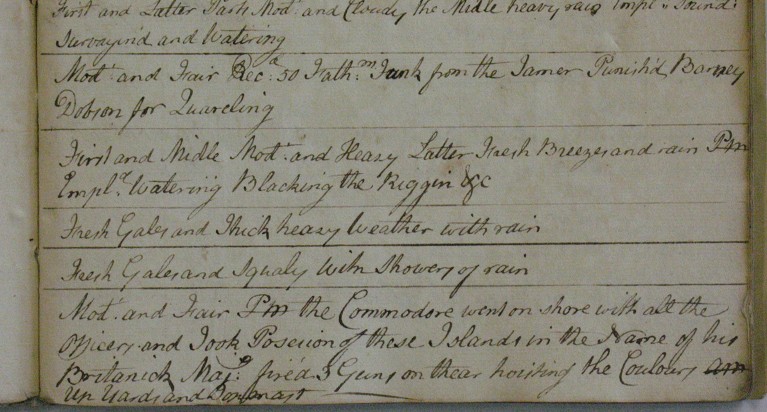 First and Latter Parts Mod.t and Cloudy the Midle heavy rain Empl.d Sound.g
Survayind and Watering
Mod.t and Fair Rec.d 50 Fath.m Junk from the Tamer Punishd Barney
Dobson for Quareling
First and Midle Mod.t and Heazy Latter Fresh Breezes and rain Pm
Empl.d Watering Blacking the Riggin &c
Fresh Gales and Thick heazy Weather with rain
Fresh Gales and Squaly With Showers of rain
Mod.t and Fair Pm the Commodore went on shore with all the
Officers and Took Posecion of these Islands in the Name of his
Britanick Maj.ty fire'd 3 Guns on thear hoisting the Coulours am
Up Yards and